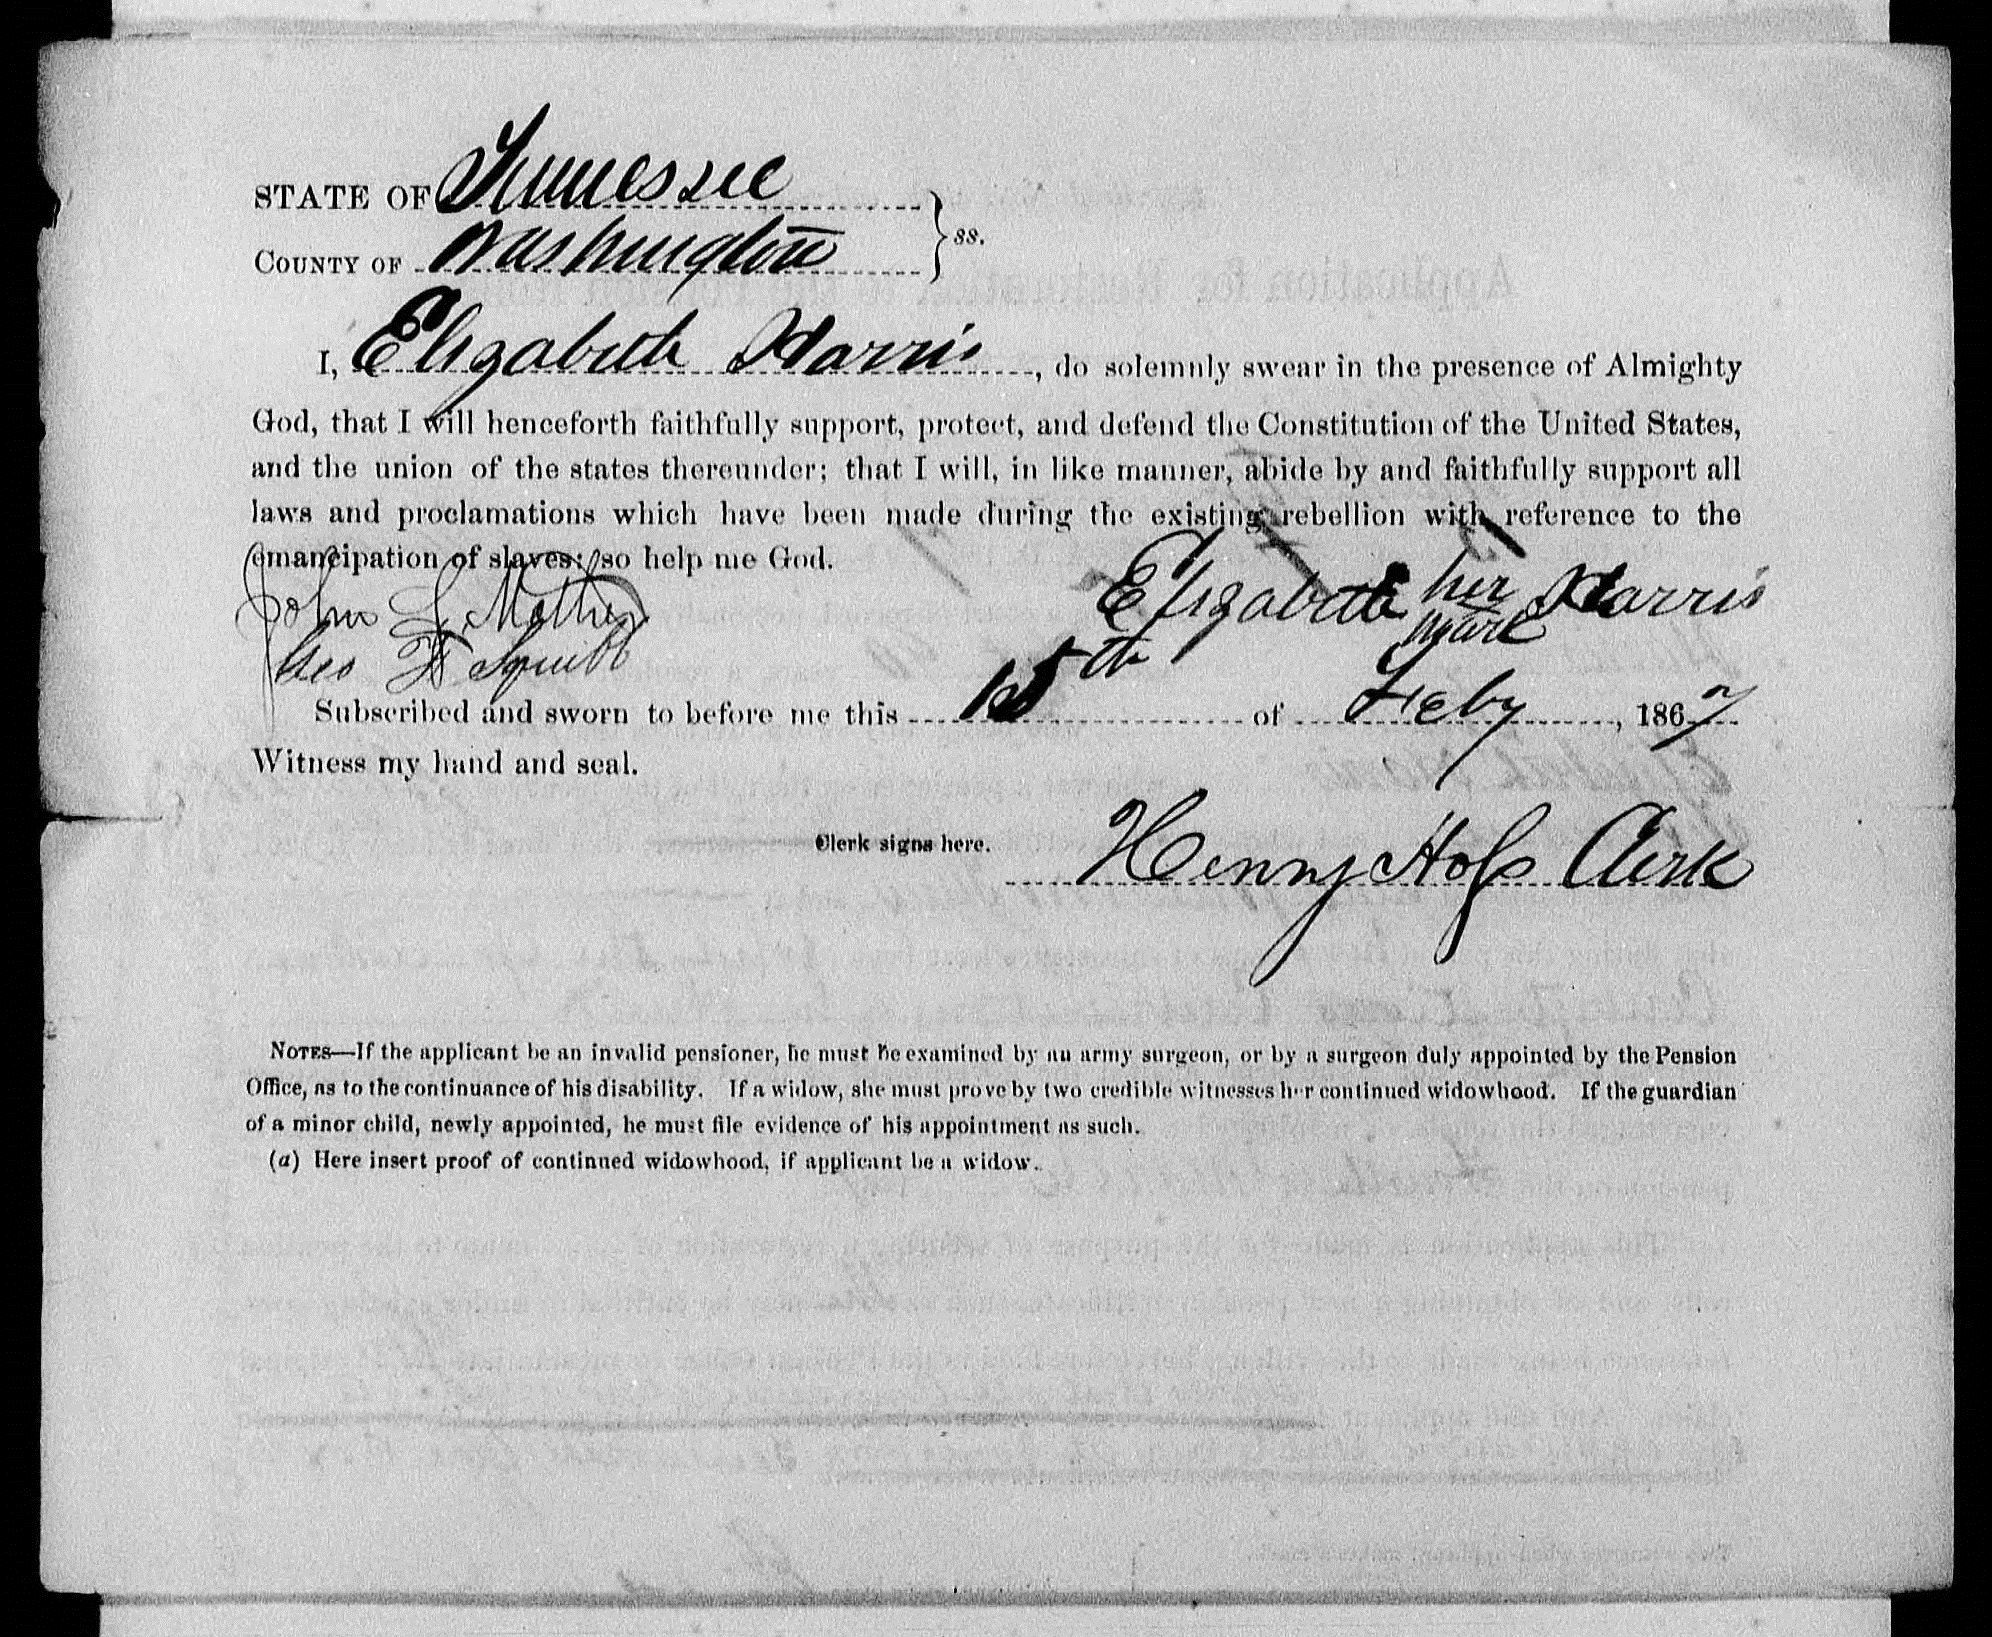 STATE OF Tennessee
COUNTY OF Washington } ss.
I, Elizabeth Harris, do solemnly swear in the presence of Almighty
God, that I will henceforth faithfully support, protect, and defend the Constitution of the United States,
and the union of the states thereunder; that I will, in like manner, abide by and faithfully support all
laws and proclamations which have been made during the existing rebellion with reference to the
emancipation of slaves; so help me God.
Elizabeth her mark Harris
John
Geo F Squibb
Subscribed and sworn to before me this 15th of Feby, 1867
Witness my hand and seal.
Clerk signs here.
Henry Clerk
NOTES—If the applicant be an invalid pensioner, he must be examined by an army surgeon, or by a surgeon duly appointed by the Pension
Office, as to the continuance of his disability. If a widow, she must prove by two credible witnesses her continued widowhood. If the guardian
of a minor child, newly appointed, he must file evidence of his appointment as such.
(a) Here insert proof of continued widowhood, if applicant be a widow.